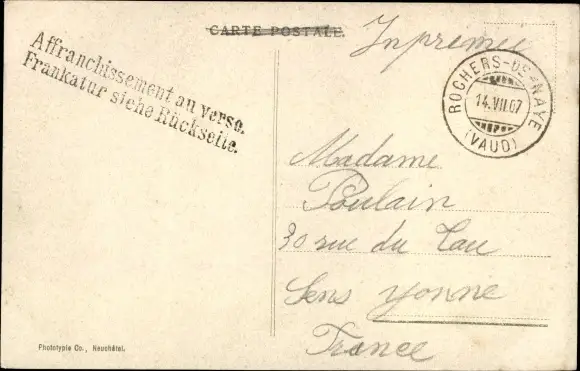 CARTE POSTALE.
Inprimée
Affranchissement au verso.
Frankatur siehe Rückseite.
ROCHERS-DE-NAYE
14.VII.07
(VAUD)
Madame
Poulain
30 rue du Tau
Sens Yonne
France
Phototypie Co., Neuchâtel.